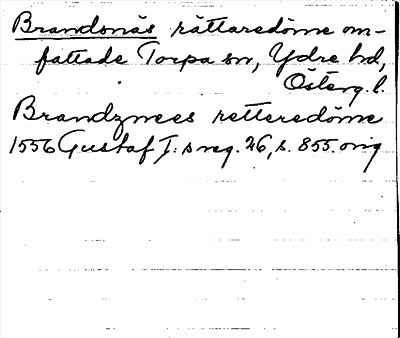 Brandsnäs rättaredöme om-
fattade Torpa sn, Ydre hd,
Österg. l.
Brandznees retteredöme
1556 Gustaf I:s reg. 26, s. 855. orig